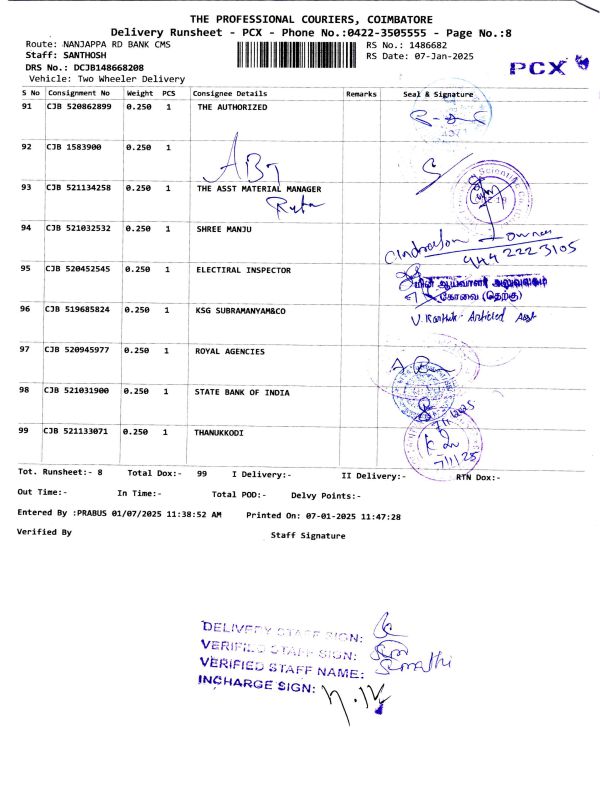 THE PROFESSIONAL COURIERS, COIMBATORE
Delivery Runsheet - PCX - Phone No.:0422-3505555 - Page No.:8
Route: NANJAPPA RD BANK CMS RS No.: 1486682
Staff: SANTHOSH RS Date: 07-Jan-2025
DRS No.: DCJB148668208 PCX
Vehicle: Two Wheeler Delivery
S No Consignment No Weight PCS Consignee Details Remarks Seal & Signature
91 CJB 520862899 0.250 1 THE AUTHORIZED
92 CJB 1583900 0.250 1 ABT
93 CJB 521134258 0.250 1 THE ASST MATERIAL MANAGER
94 CJB 521032532 0.250 1 SHREE MANJU owner
944 222 3105
95 CJB 520452545 0.250 1 ELECTIRAL INSPECTOR மின் ஆய்வாளர் அலுவலகம்
கோவை (தெற்கு)
96 CJB 519685824 0.250 1 KSG SUBRAMANYAM&CO V. Karthik - Articled Asst
97 CJB 520945977 0.250 1 ROYAL AGENCIES
98 CJB 521031900 0.250 1 STATE BANK OF INDIA
7/1/2025
99 CJB 521133071 0.250 1 THANUKKODI
7/1/25
Tot. Runsheet:- 8 Total Dox:- 99 I Delivery:- II Delivery:- RTN Dox:-
Out Time:- In Time:- Total POD:- Delvy Points:-
Entered By :PRABUS 01/07/2025 11:38:52 AM Printed On: 07-01-2025 11:47:28
Verified By Staff Signature
DELIVERY STAFF SIGN:
VERIFIED STAFF SIGN:
VERIFIED STAFF NAME: Sumathi
INCHARGE SIGN: